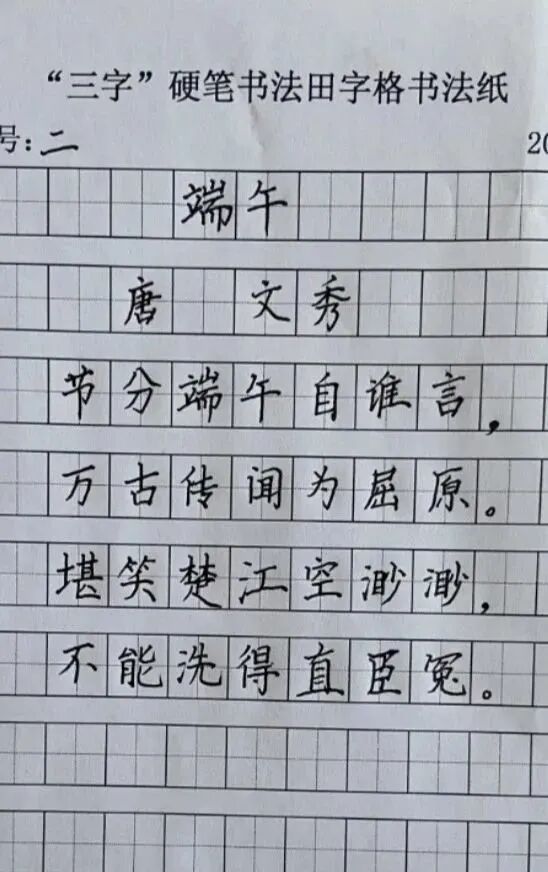 “三字”硬笔书法田字格书法纸
号:二 20
端午
唐 文秀
节分端午自谁言,
万古传闻为屈原。
堪笑楚江空渺渺,
不能洗得直臣冤。